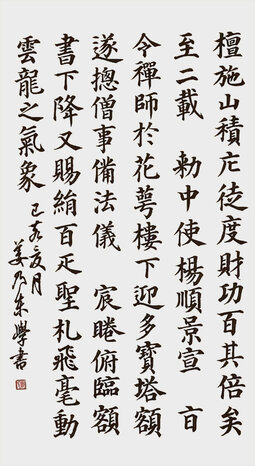 檀施山積庀徒度財功百其倍矣
至二載 勅中使楊順景宣 旨
令禪師於花萼樓下迎多寶塔額
遂摠僧事備法儀 宸睠俯臨額
書下降又賜絹百疋聖札飛毫動
雲龍之氣象 己亥夏月
姜 學書